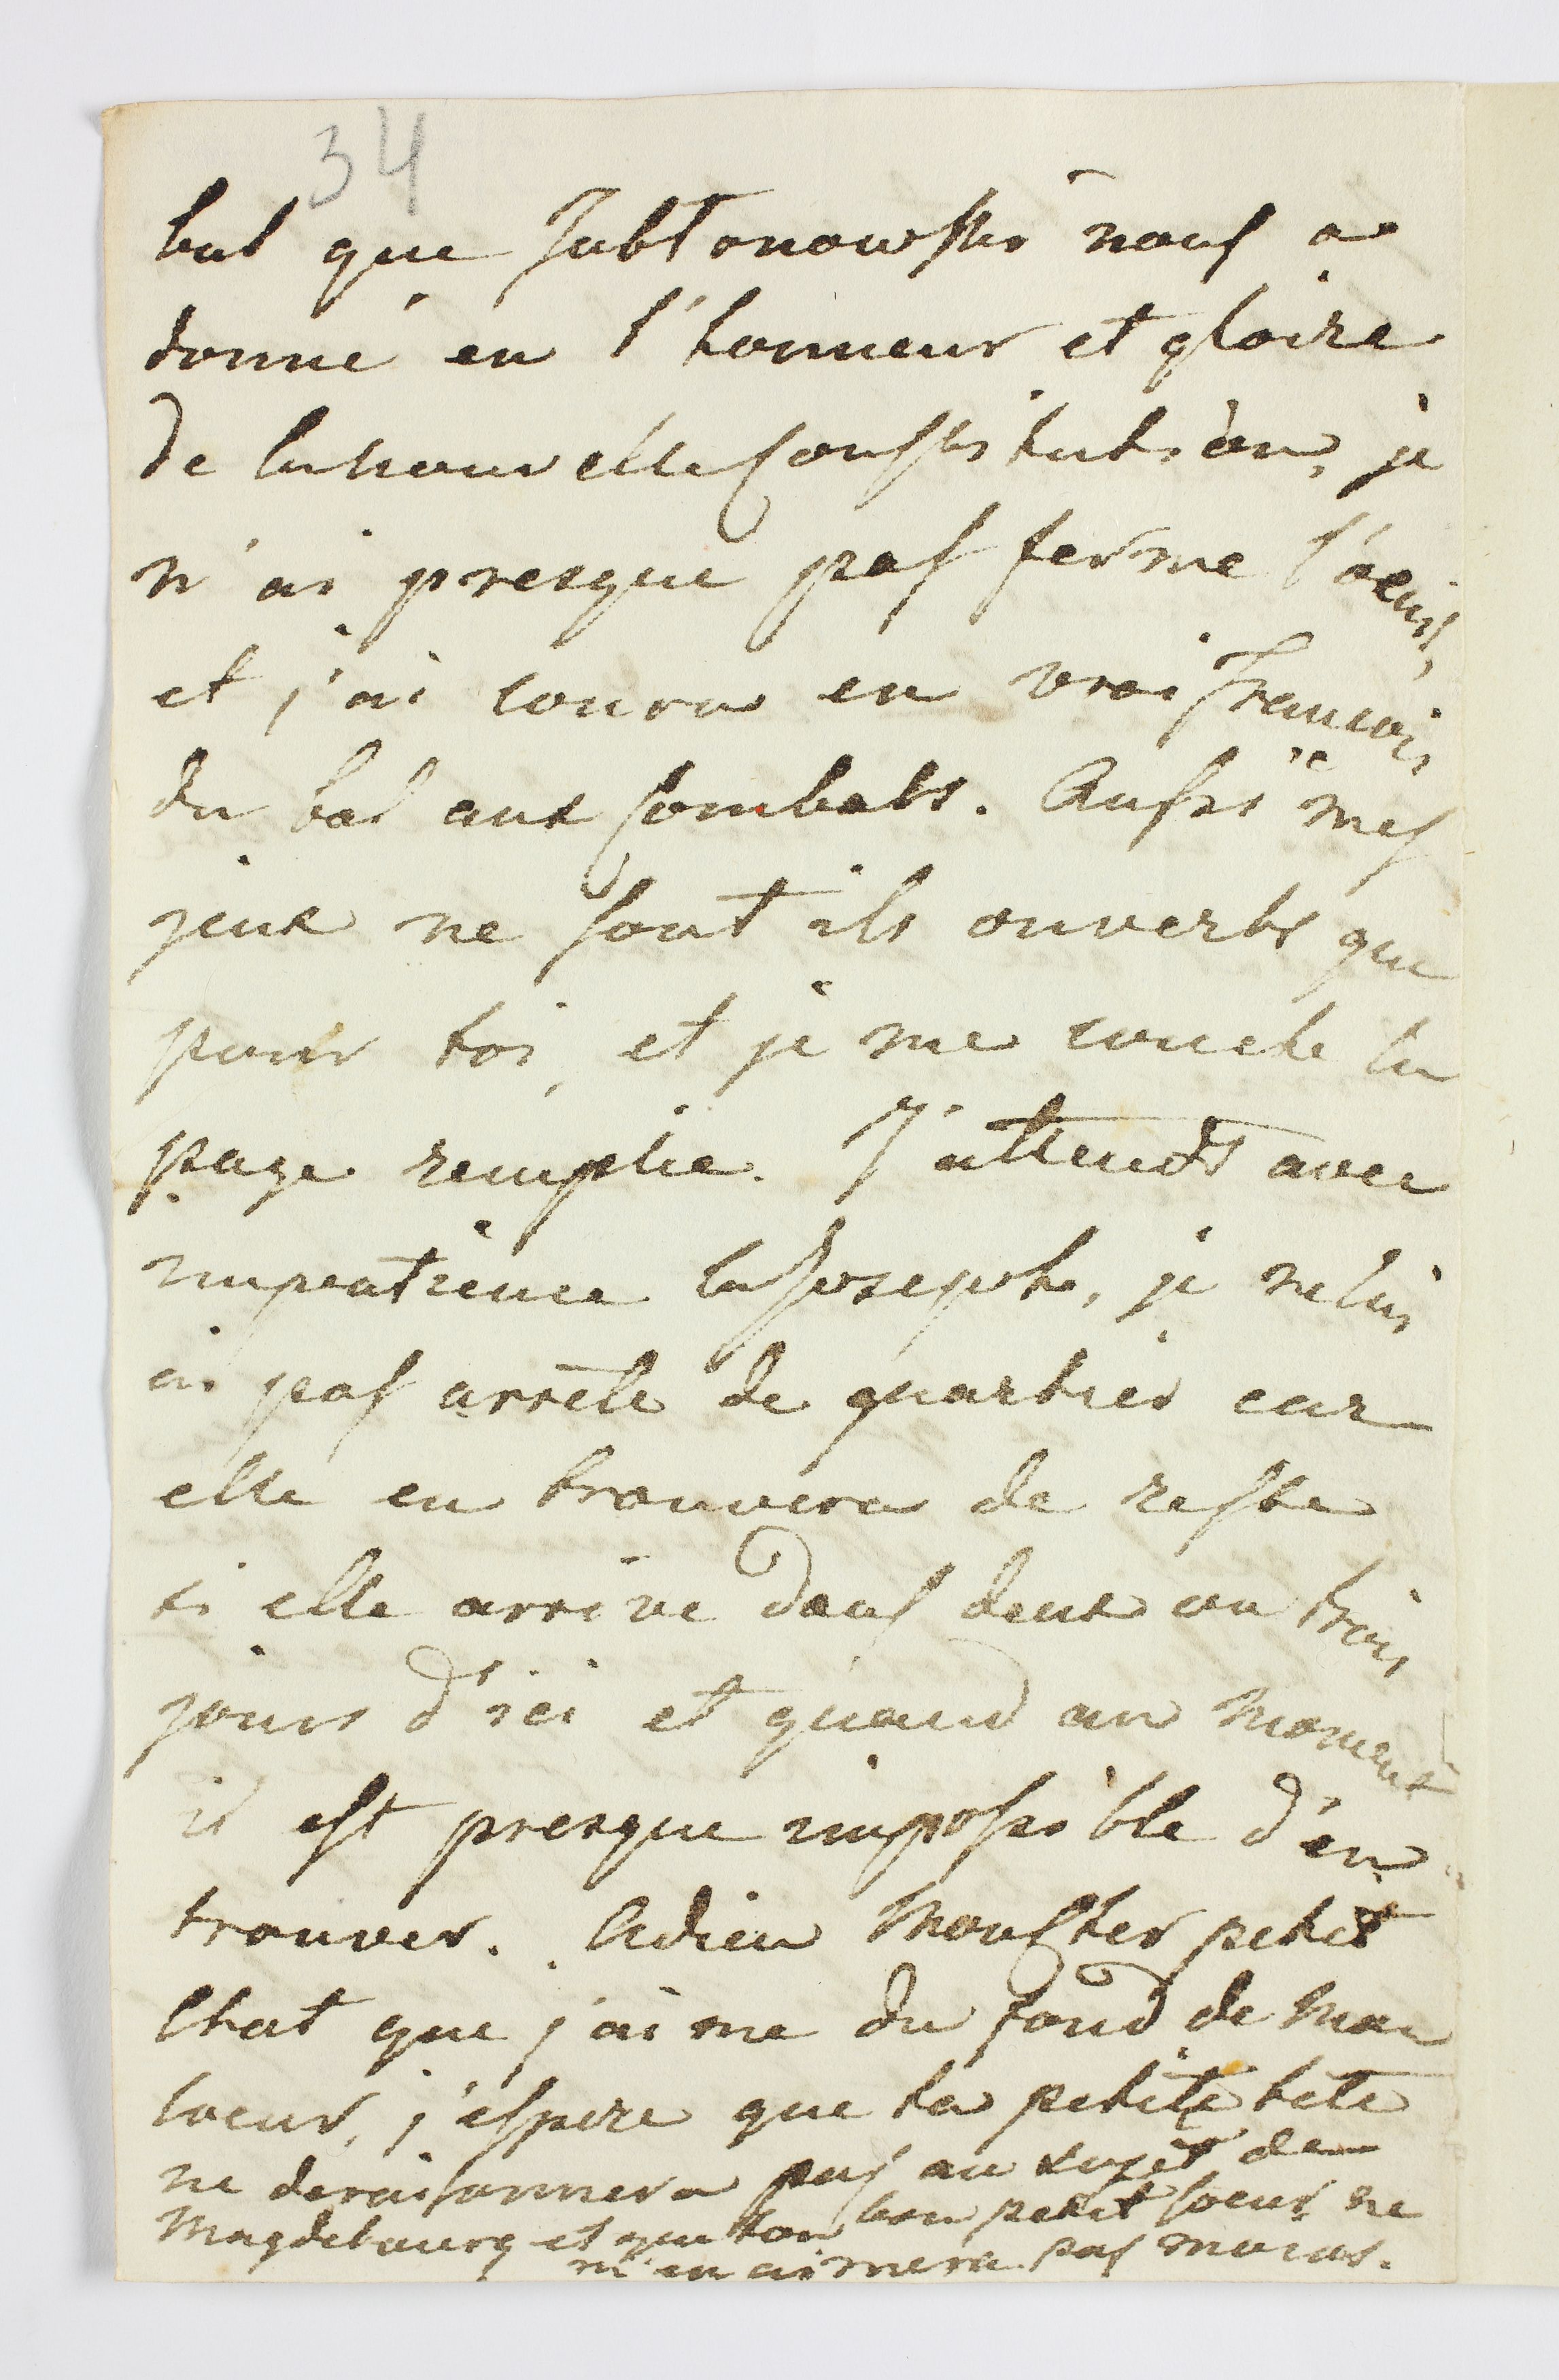 34
bal que Jablonowski nous a
donné en l'honneur et gloire
de la nouvelle Constitution, je
n'ai presque pas ferme l'oeuil,
et j'ai couru en vrai francois
du bal aux Combats. Aussi mes
yeux ne sont ils ouverts que
pour toi, et je me couche la
page remplie. J'attends avec
impatience la Josephe, je ne lui
ai pas arrêté de quartier car
elle en trouvera de reste
si elle arrive dans deux ou trois
jours d'ici et quand au moment
il est presque impossible d'en
trouver. Adieu Mouster petit
Chat que j'aime du fond de mon
Coeur, j'espere que ta petite tête
ne deraisonnera pas au sujet de
Magdebourg et que ton bon petit Coeur ne
m'en aimera pas moins.